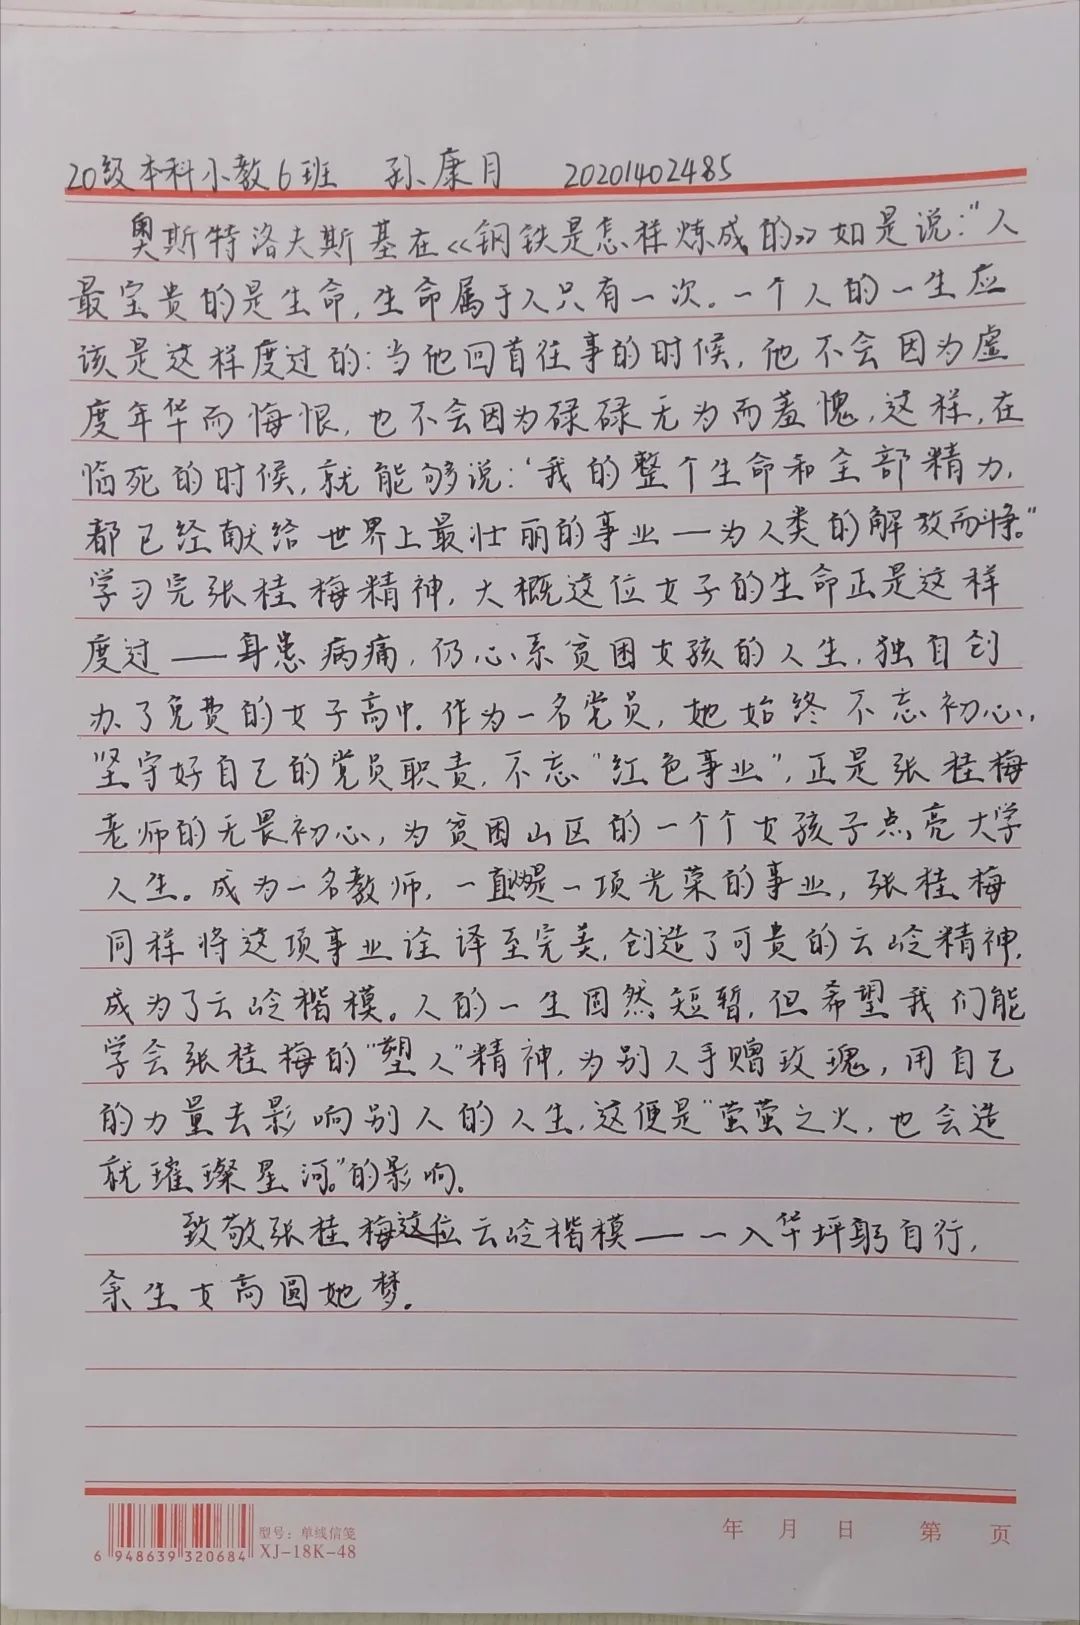 20级本科小教6班 孙康月 20201402485
奥斯特洛夫斯基在《钢铁是怎样炼成的》如是说:“人
最宝贵的是生命,生命属于人只有一次。一个人的一生应
该是这样度过的:当他回首往事的时候,他不会因为虚
度年华而悔恨,也不会因为碌碌无为而羞愧,这样,在
临死的时候,就能够说:‘我的整个生命和全部精力,
都已经献给世界上最壮丽的事业—为人类的解放而斗争。”
学习完张桂梅精神,大概这位女子的生命正是这样
度过——身患病痛,仍心系贫困女孩的人生,独自创
办了免费的女子高中。作为一名党员,她始终不忘初心,
坚守好自己的党员职责,不忘“红色事业”,正是张桂梅
老师的无畏初心,为贫困山区的一个个女孩子点亮大学
人生。成为一名教师,一直是一项光荣的事业,张桂梅
同样将这项事业诠译至完美,创造了可贵的云岭精神,
成为了云岭楷模。人的一生固然短暂,但希望我们能
学会张桂梅的“塑人”精神,为别人手赠玫瑰,用自己
的力量去影响别人的人生,这便是“萤萤之火,也会造
就璀璨星河。”的影响。
致敬张桂梅这位云岭楷模——一入华坪躬自行,
余生女高圆她梦。
6 948639 320684
型号:单线信笺
XJ-18K-48
年 月 日 第 页